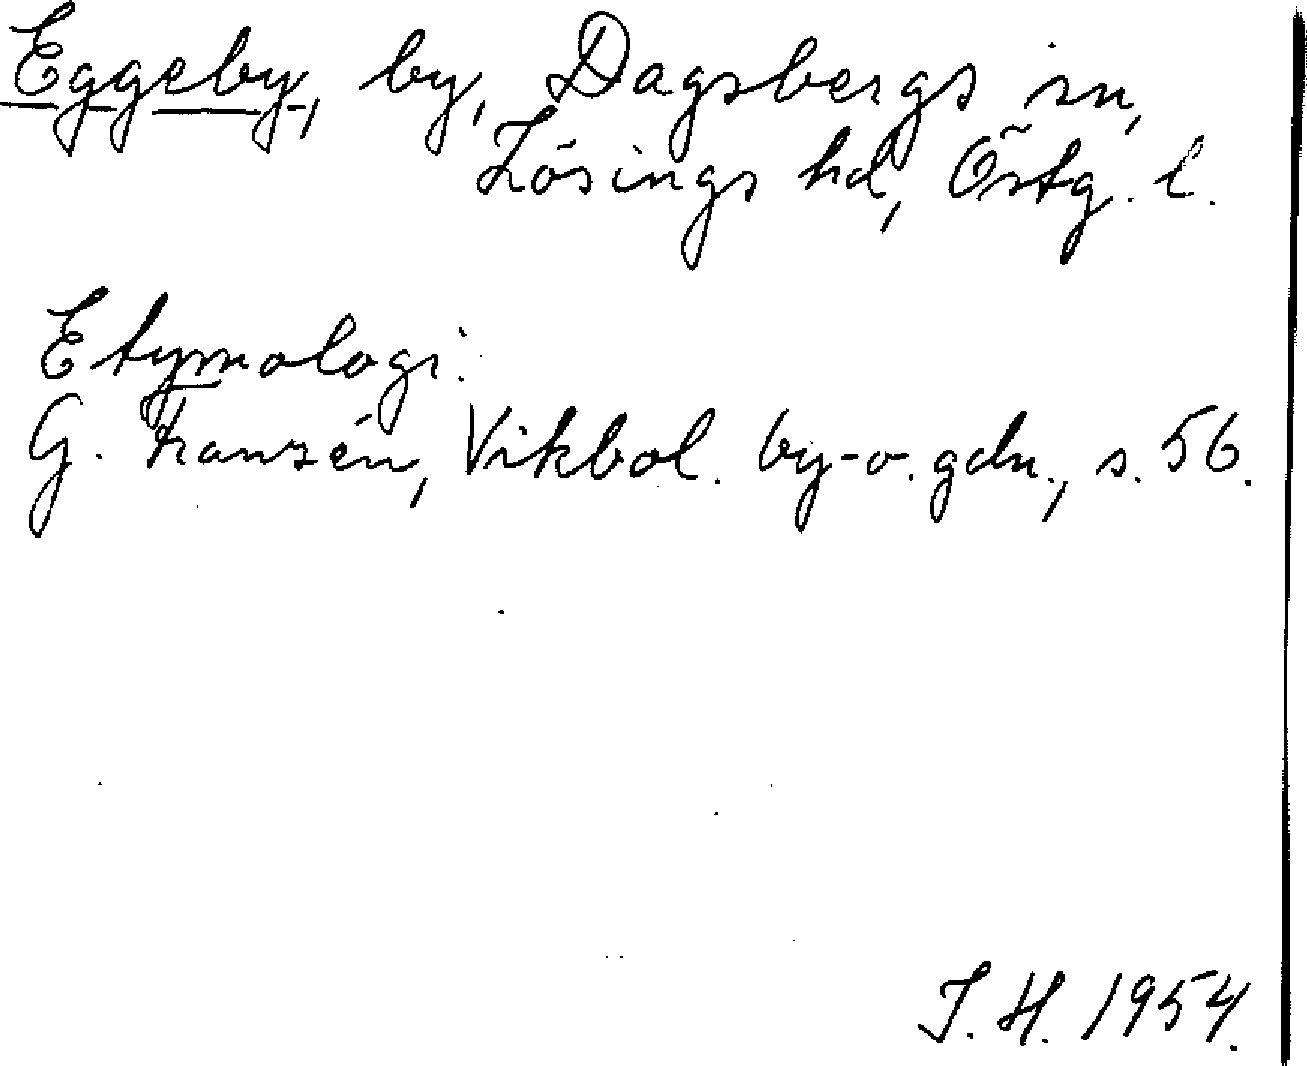 Eggeby, by, Dagsbergs sn,
Lösings hd, Östg. l.
Etymologi:
G. Franzén, Vikbol. by- o. gdn., s. 56.
J. H. 1954.